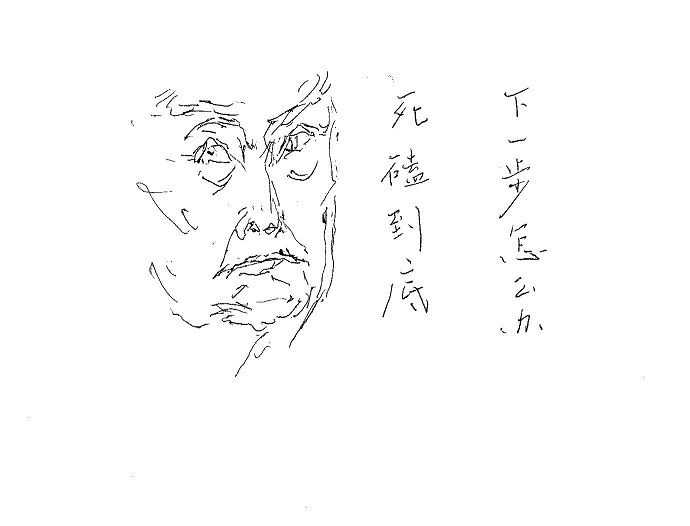 下一步怎么办
死磕到底